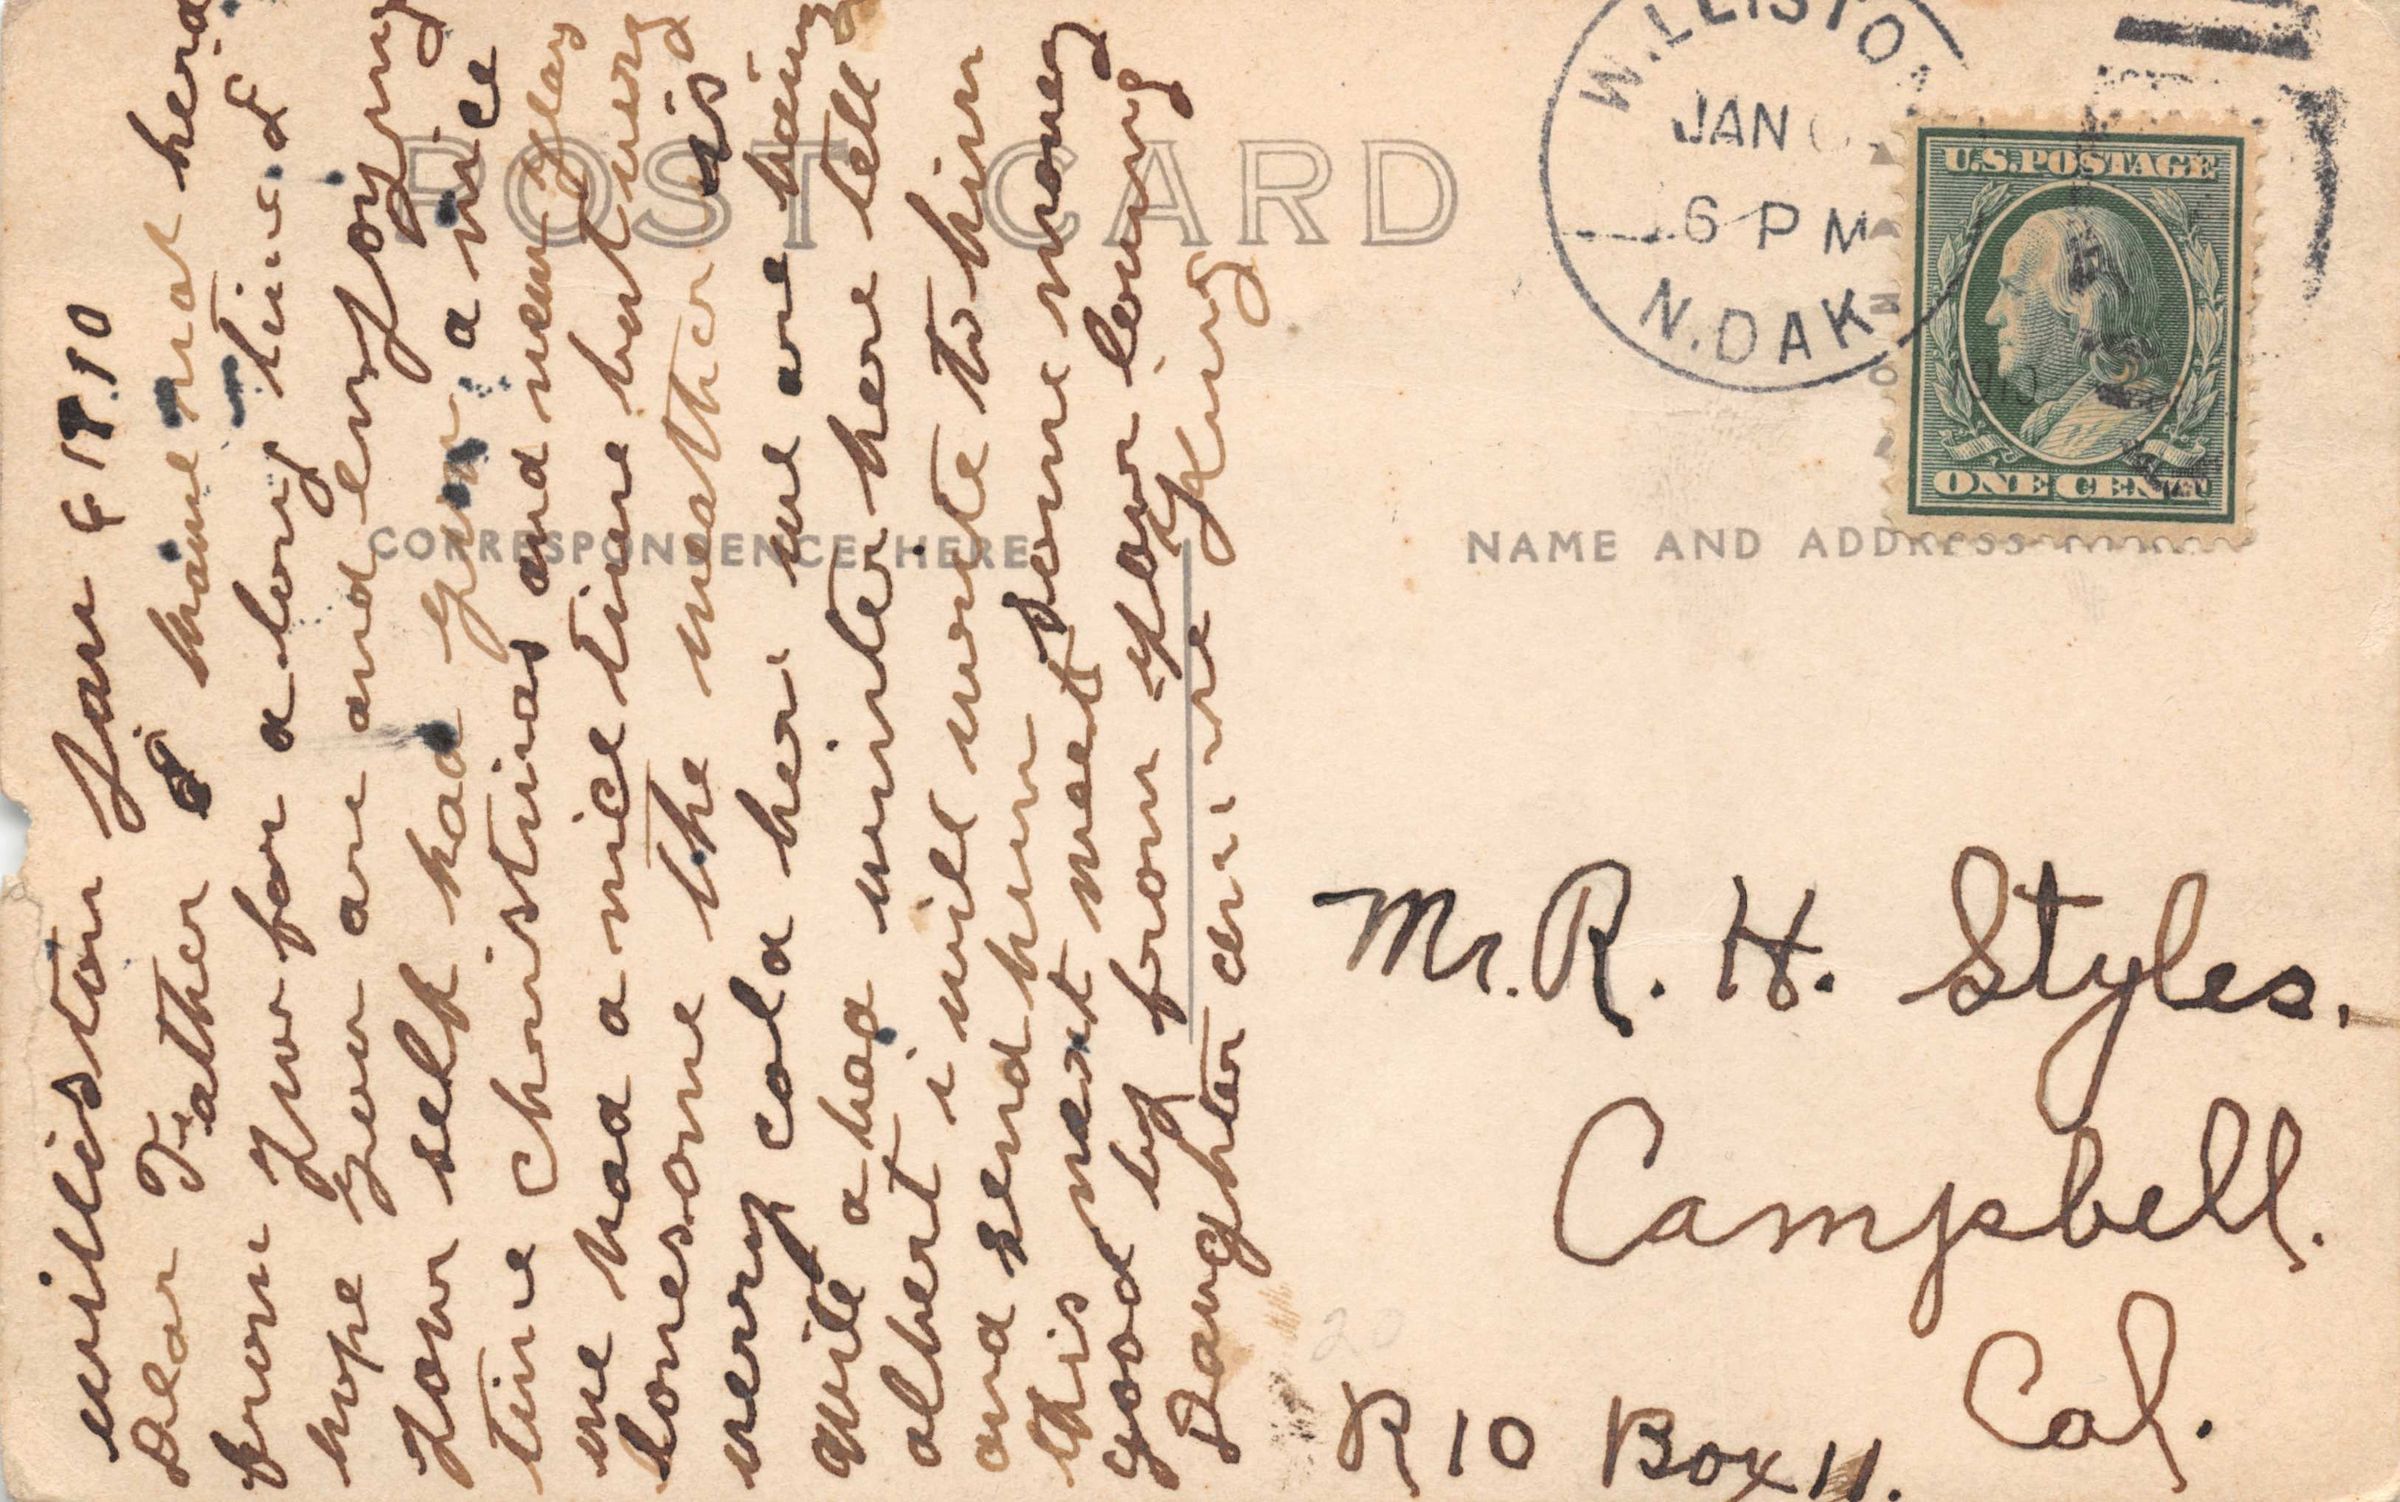 williston Jan 6 1910
Dear Father I have not herd
from you for a long time. I
hope you are and enyoying
your self had you a nice
time christmas and new years
we had a nice time but very
lonesome the weather is
very cold her. we are haing
quite a hed winter here tell
albert i will write to him
and send him some money
this next week
good by from your loving
Daughter King
POST CARD
CORRESPONDENCE HERE
NAME AND ADDRESS
WILLISTON
JAN
6 PM
N. DAK.
U.S. POSTAGE
ONE CENT
Mr. R. H. Styles.
Campbell.
Cal.
P O Box 11.
20